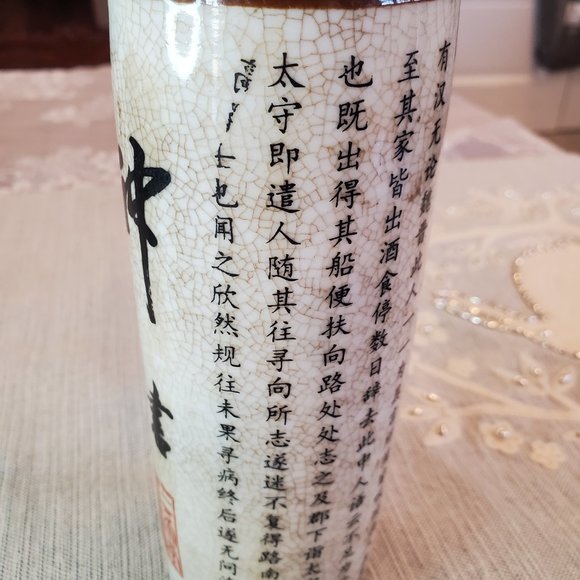 有汉无论魏晋此人一一
至其家皆出酒食停数日辞去此中人语云不足为
也既出得其船便扶向路处处志之及郡下诣太
太守即遣人随其往寻向所志遂迷不复得路南
士也闻之欣然规往未果寻病终后遂无问
書